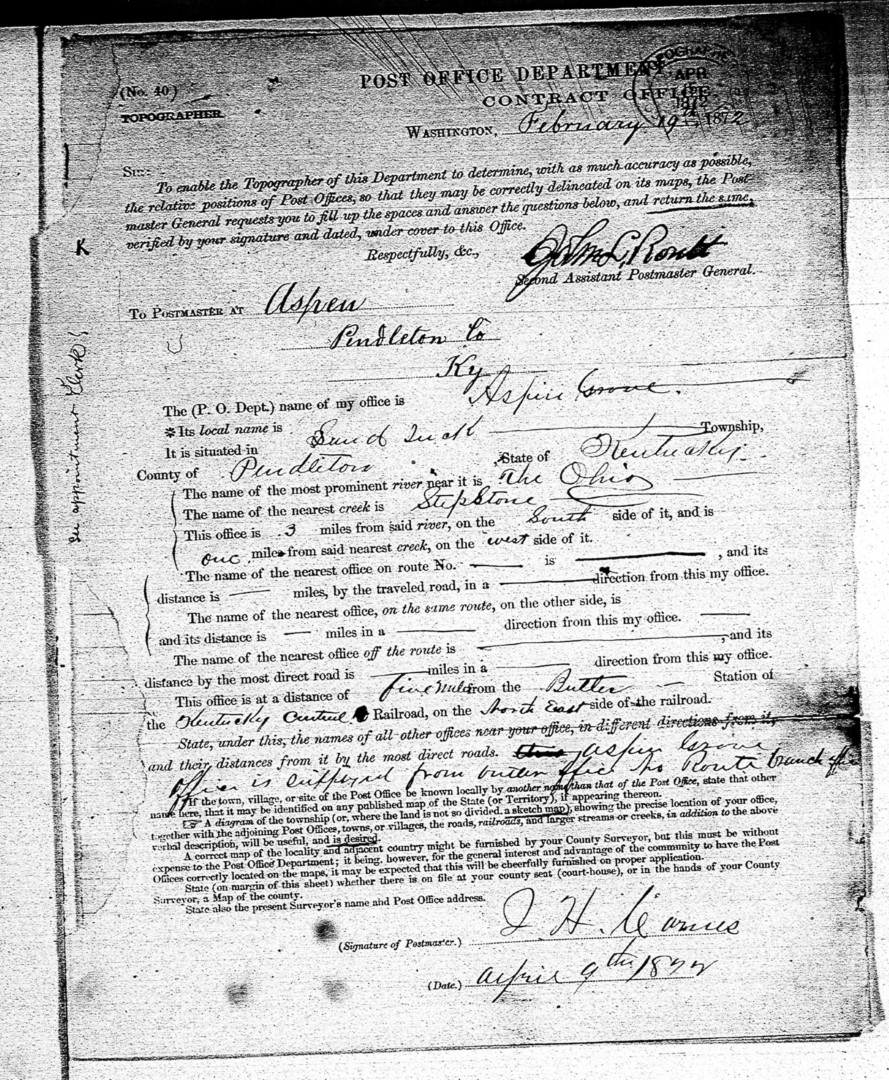 (No. 40)
TOPOGRAPHER.
POST OFFICE DEPARTMENT,
CONTRACT OFFICE,
TOPOGRAPHE
APR
1872
WASHINGTON, February 19th, 1872
SIR:
To enable the Topographer of this Department to determine, with as much accuracy as possible,
the relative positions of Post Offices, so that they may be correctly delineated on its maps, the Post-
master General requests you to fill up the spaces and answer the questions below, and return the same,
verified by your signature and dated, under cover to this Office.
Respectfully, &c.,
John L. Routt
Second Assistant Postmaster General.
K
TO POSTMASTER AT Aspen
Pendleton Co
Ky
see appointment Clerk
The (P. O. Dept.) name of my office is Aspin Grove.
*Its local name is
It is situated in Sand Tuck Township,
County of Pendleton, State of Kentucky.
The name of the most prominent river near it is The Ohio
The name of the nearest creek is StepStone
This office is 3 miles from said river, on the South side of it, and is
one miles from said nearest creek, on the west side of it.
The name of the nearest office on route No. — is —, and its
distance is — miles, by the traveled road, in a — direction from this my office.
The name of the nearest office, on the same route, on the other side, is
and its distance is — miles in a — direction from this my office. —
The name of the nearest office off the route is —, and its
distance by the most direct road is — miles in a — direction from this my office.
This office is at a distance of five miles from the Butler — Station of
the Kentucky Central Railroad, on the North East side of the railroad.
State, under this, the names of all other offices near your office, in different directions from it,
and their distances from it by the most direct roads. Aspin Grove
office is supplyed from butler office No Route branch office
If the town, village, or site of the Post Office be known locally by another name than that of the Post Office, state that other
name here, that it may be identified on any published map of the State (or Territory), if appearing thereon.
☞ A diagram of the township (or, where the land is not so divided, a sketch map), showing the precise location of your office,
together with the adjoining Post Offices, towns, or villages, the roads, railroads, and larger streams or creeks, in addition to the above
verbal description, will be useful, and is desired.
A correct map of the locality and adjacent country might be furnished by your County Surveyor, but this must be without
expense to the Post Office Department; it being, however, for the general interest and advantage of the community to have the Post
Offices correctly located on the maps, it may be expected that this will be cheerfully furnished on proper application.
State (on margin of this sheet) whether there is on file at your county seat (court-house), or in the hands of your County
Surveyor, a Map of the county.
State also the present Surveyor's name and Post Office address.
(Signature of Postmaster.) J. H. Carnes
(Date.) April 9th 1872